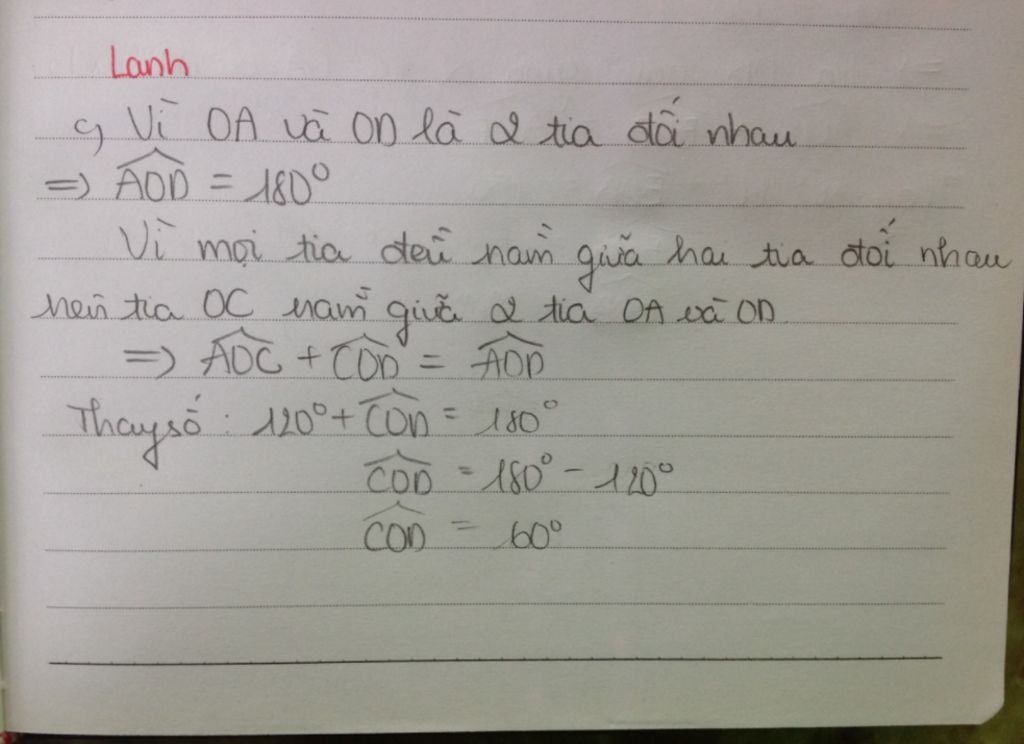 Lanh
c) Vì OA và OD là 2 tia đối nhau
=> \widehat{AOD} = 180°
Vì mọi tia đều nằm giữa hai tia đối nhau
nên tia OC nằm giữa 2 tia OA và OD
=> \widehat{AOC} + \widehat{COD} = \widehat{AOD}
Thay số : 120° + \widehat{COD} = 180°
\widehat{COD} = 180° - 120°
\widehat{COD} = 60°